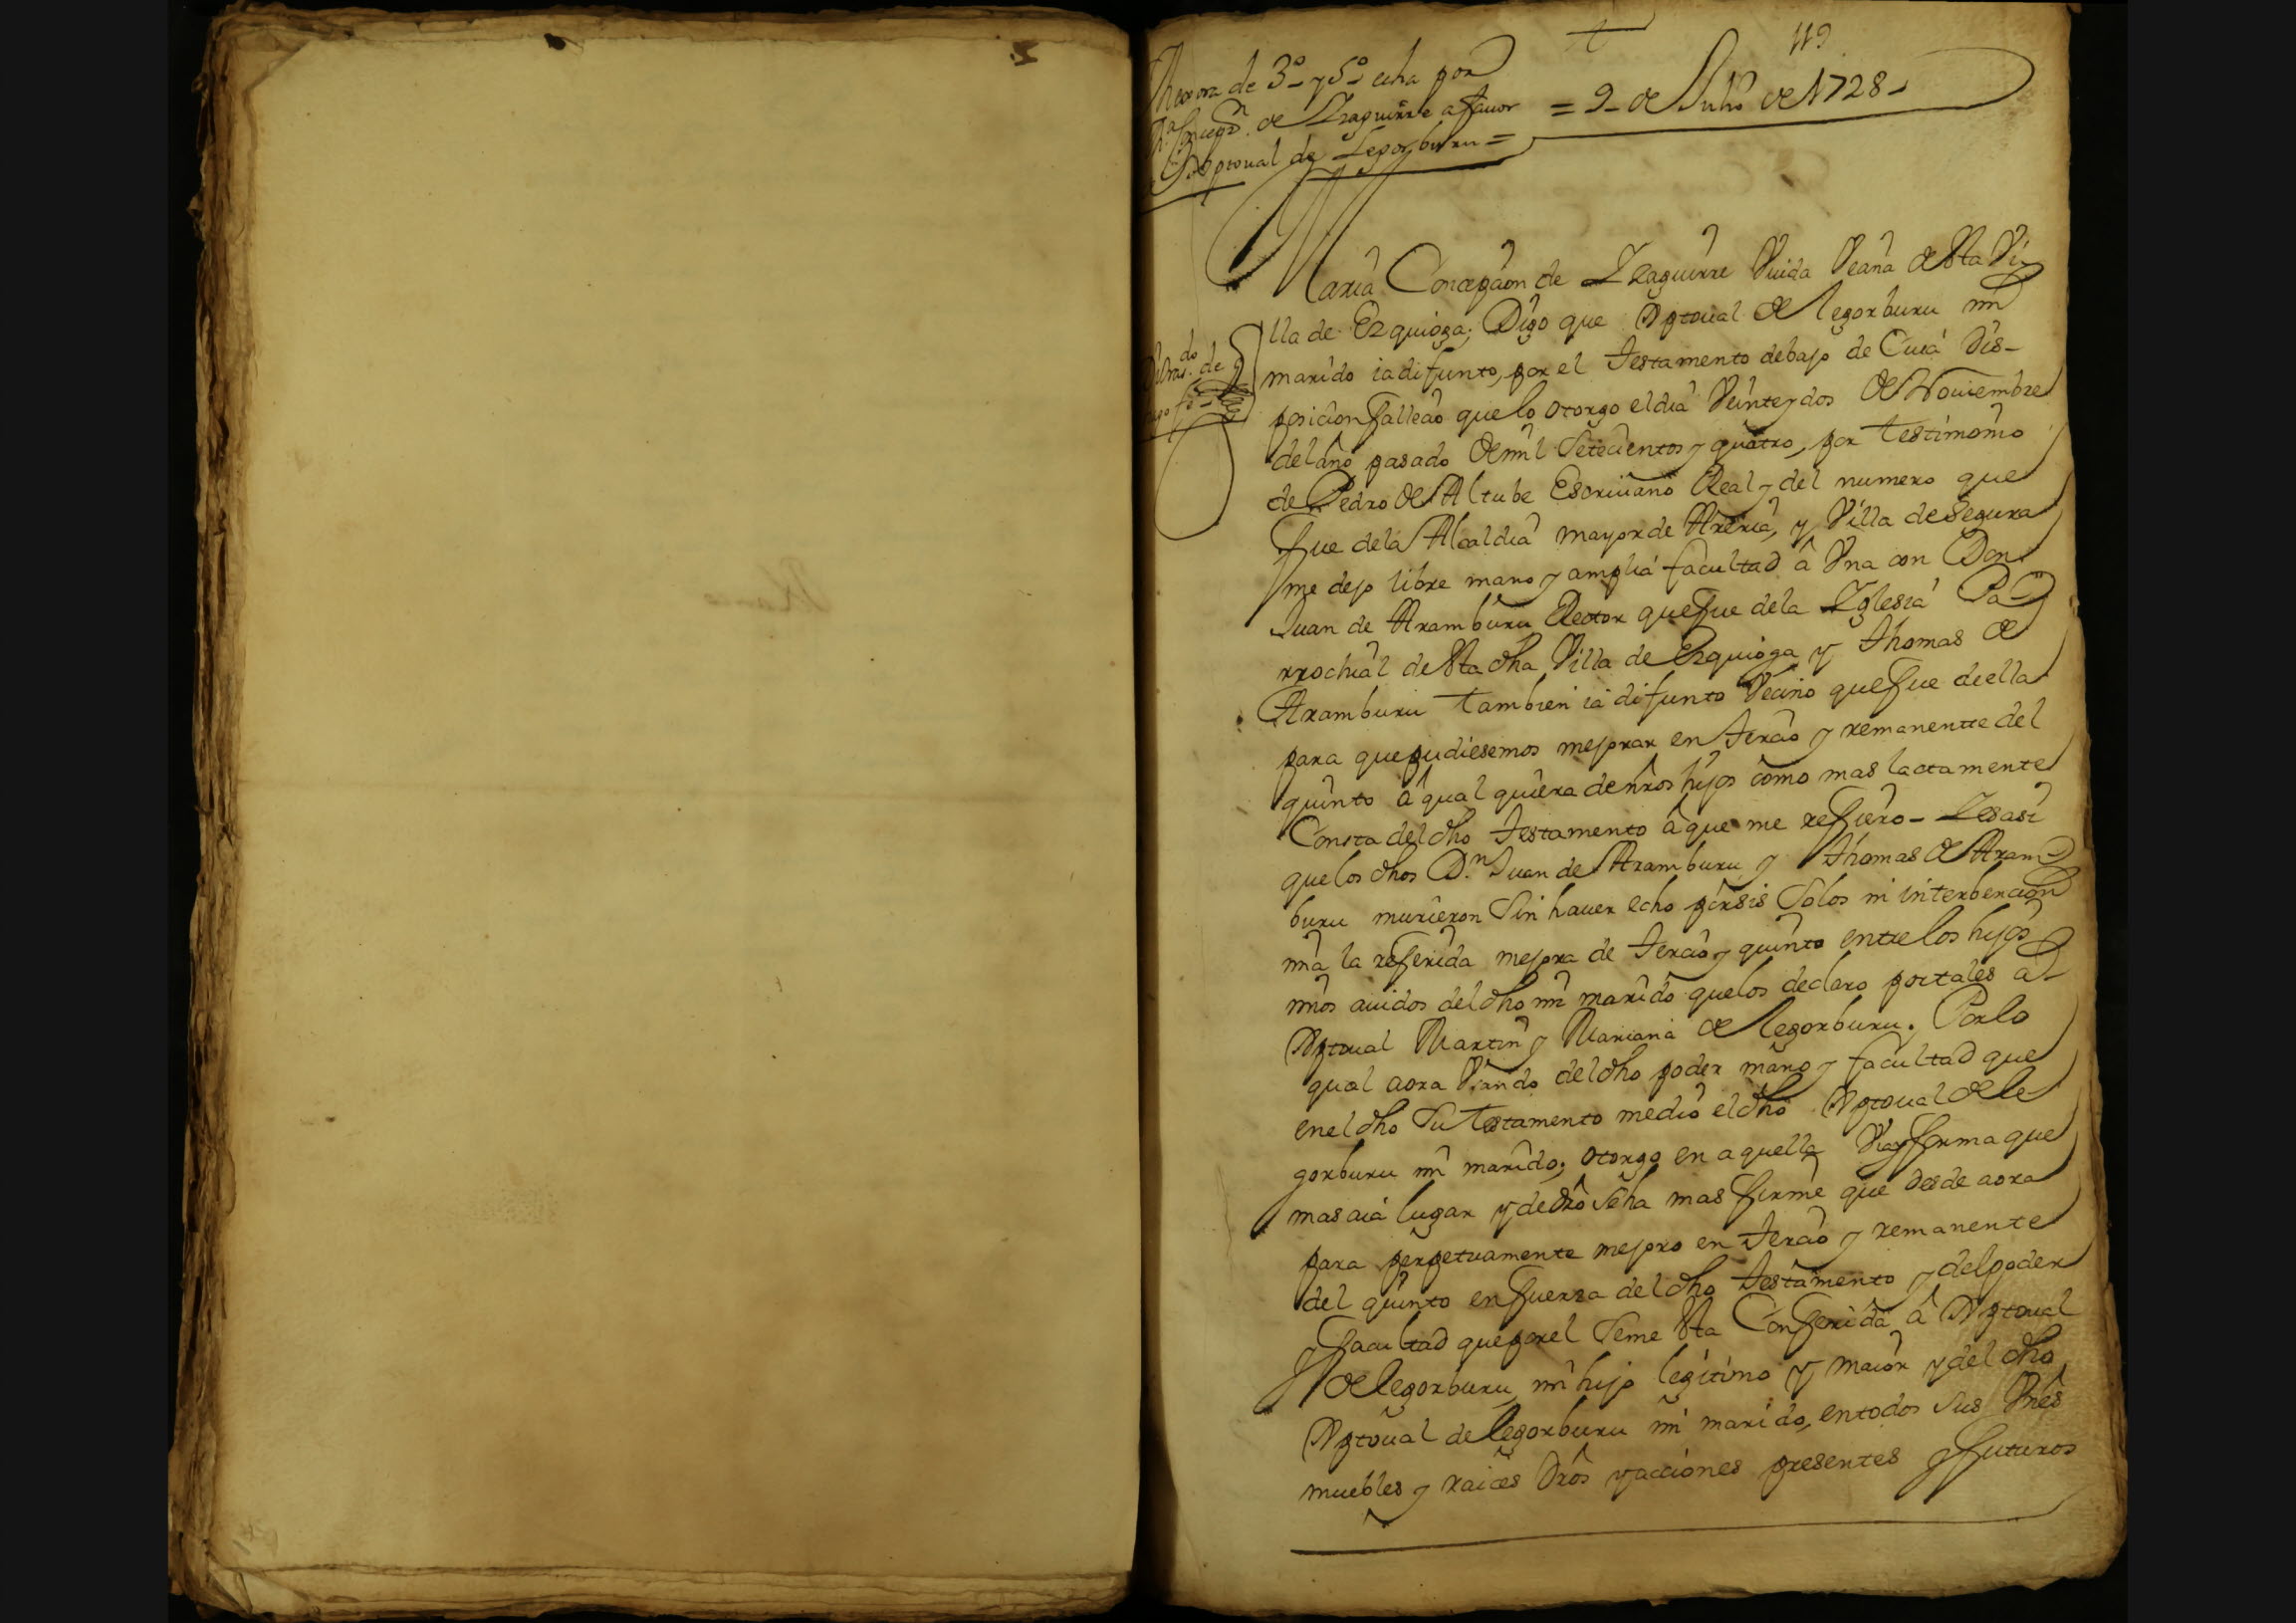 119
Mexora de 3º y 5º echa por
de Yzaguirre a fauor
Xptoual de Legorburu =
= 9 de Julio de 1728
Maria Concepcion de Yzaguirre Viuda Vecina de Sta Vi
lla de Ezquioga; Digo que Xptoual de legorburu mi
marido ia difunto, por el testamento debajo de Cuia dis-
posicion fallecio que lo otorgo el dia Veinte y dos de Nouiembre
del año pasado de mil Setecientos y quatro, por testimonio
de Pedro de Altube Escriuano Real y del numero que
fue dela Alcaldia mayor de Areria, y Villa de Segura
me dejo libre mano y amplia facultad â Vna con Don
Juan de Aramburu Rector que fue dela Yglesia Pa
rrochial de Sta dha Villa de Ezquioga y Thomas de
Aramburu tambien ia difunto Vecino que fue de ella
para que pudiesemos mejorar en tercio y remanentte del
quinto â qual quiera de nros hijos como mas lactamente
Consta del dho testamento â que me refiero - Yes asi
que los dhos Dn Juan de Aramburu y Thomas de Aram
buru murieron Sin hauer echo por si Solos ni interbencion
mia la referida mejora de tercio y quinto entre los hijos
mios auidos del dho mi marido que los declaro por tales a
Xptoual Martin y Mariana de legorburu. Por lo
qual aora Vsando del dho poder mano y facultad que
en el dho Su testamento me dio el dho Xptoual de le
gorburu mi marido; otorgo en aquella Via y forma que
mas aia lugar y de dro Sea mas firme que desde aora
para perpetuamente mejoro en tercio y remanente
del quinto en fuerza del dho testamento y del poder
y facultad que por el Seme Sta Conferida â Xptoual
de legorburu mi hijo legitimo y maior y del dho
Xptoual de legorburu mi marido, en todos sus Vnes
muebles y raices dros y acciones presentes y futuros